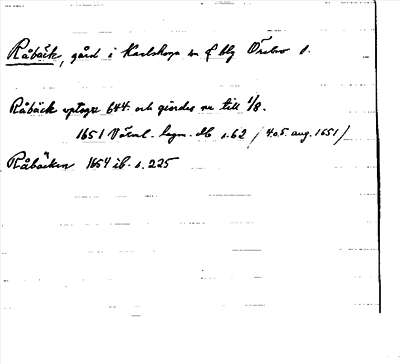 Råbäck, gård i Karlskoga sn & blg Örebro l.
Råbäck uptogz 644. och giordes nu till 1/8.
1651 Värml. lagm. db s.62 / 4o5. aug. 1651/
Råbäcken 1654 ib. s. 225